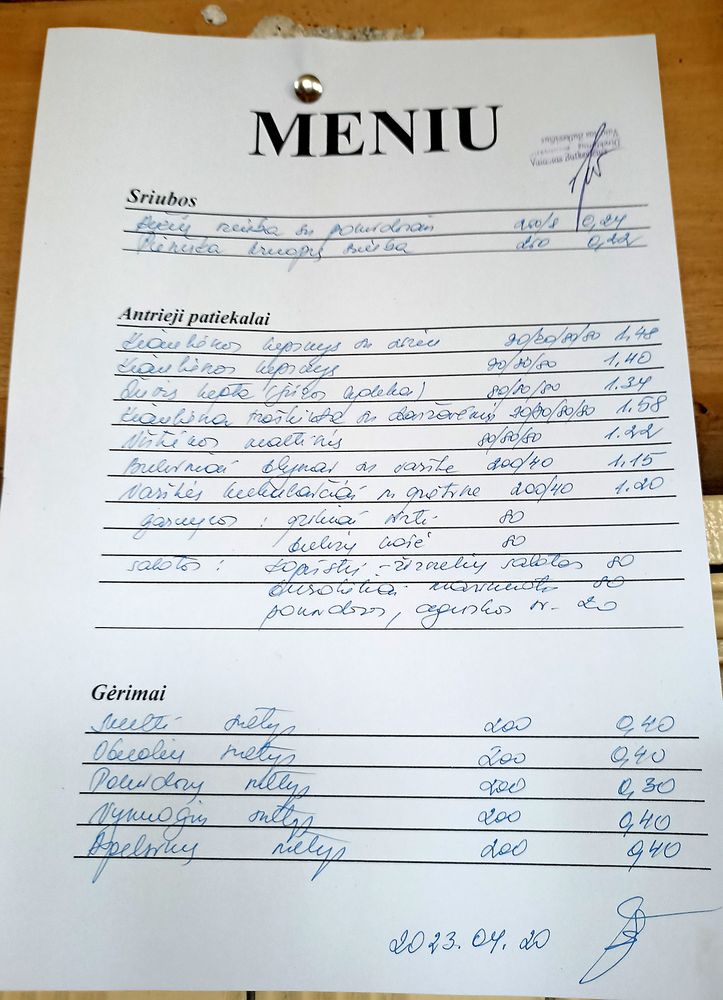 MENIU
Sriubos
sriuba su pomidorais 200/8 0,24
Pieniška kruopų sriuba 200 0,22
Antrieji patiekalai
Kiaulienos kepsnys su 1.48
Kiaulienos kepsnys 80/80/80 1,40
Žuvis kepta 80/80/80 1.34
Kiauliena troškinta su daržovėmis 1.58
Vištienos maltinis 80/80/80 1.22
Bulviniai blynai su varške 200/40 1.15
Varškės su grietine 200/40 1.20
garnyras : grikiai virti 80
bulvių košė 80
salotos : kopūstų - žirnelių salotos 80
burokėliai marinuoti 80
pomidoras, agurkas šv- 20
Gėrimai
Multi sultys 200 0,40
Obuolių sultys 200 0,40
Pomidorų sultys 200 0,30
Vynuogių sultys 200 0,40
Apelsinų sultys 200 0,40
2023.04.20